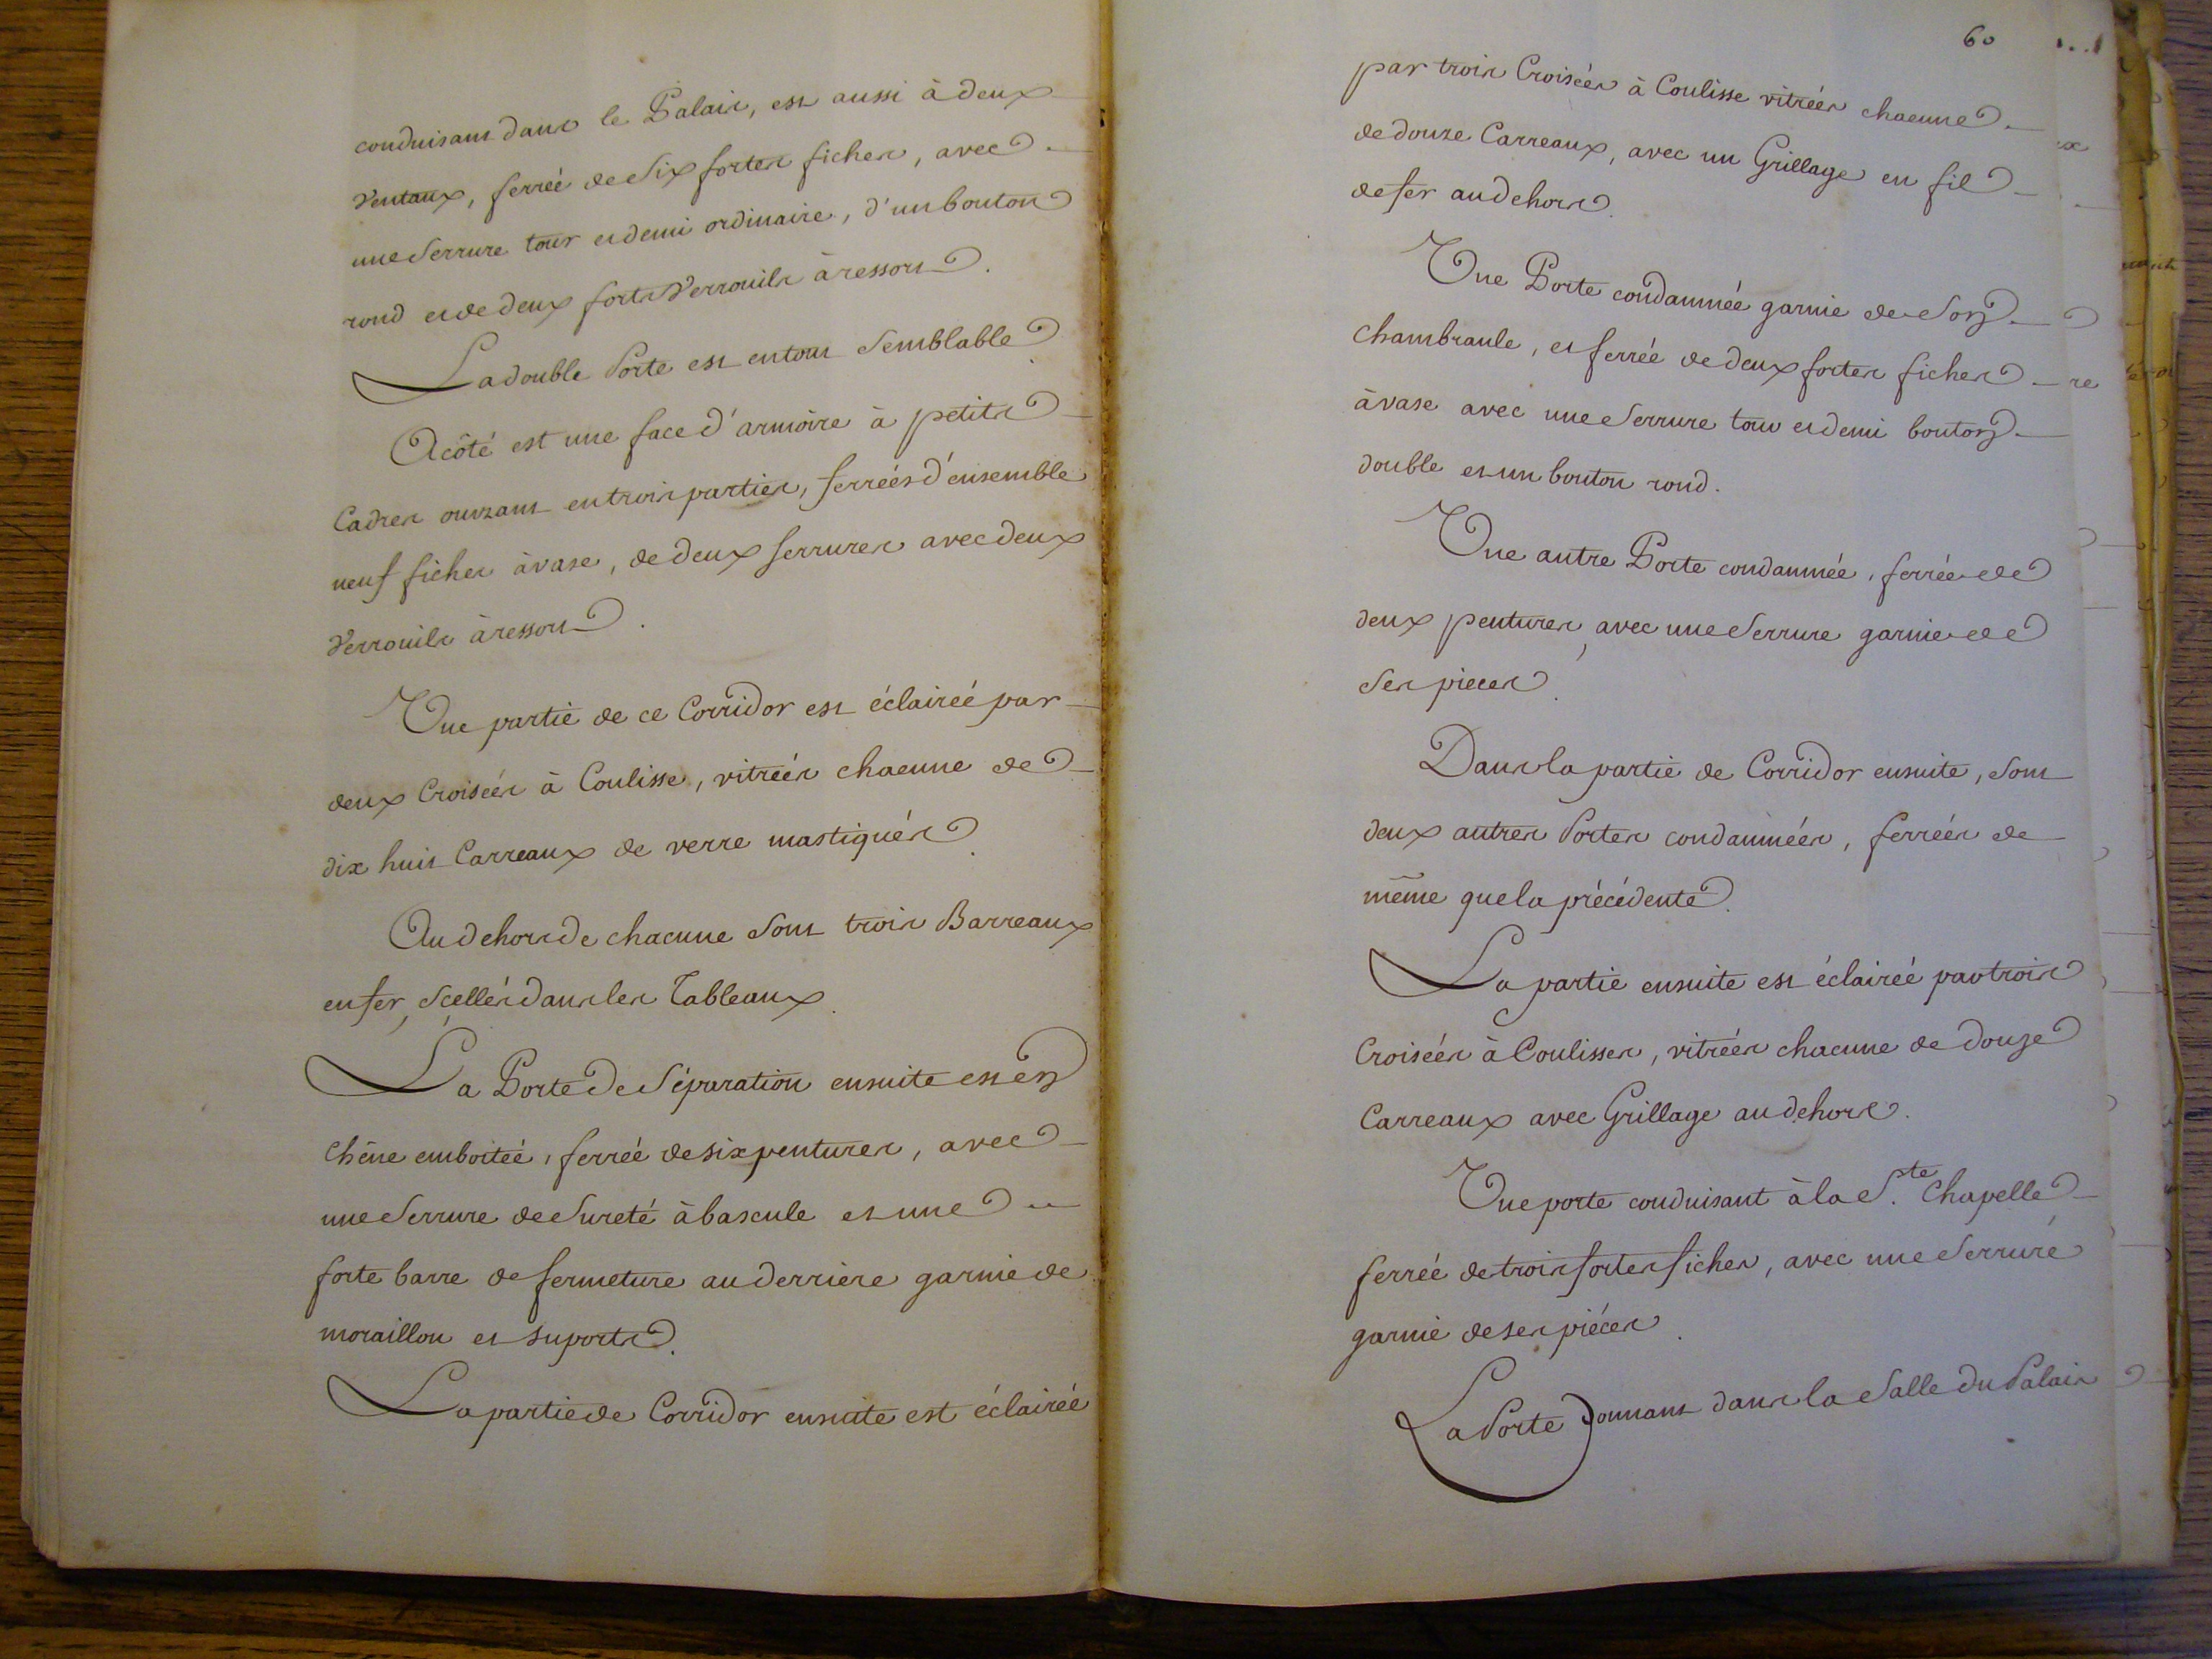 conduisant dans le Palais, est aussi à deux
Ventaux, ferrée de Six fortes fiches, avec
une Serrure tour et demi ordinaire, d'un bouton
rond et de deux forts Verrouils à ressort.
La double Porte est en tout Semblable.
A côté est une face d'armoire à petits
Cadres ouvrant en trois parties, ferrées d'ensemble
neuf fiches à vase, de deux serrures avec deux
Verrouils à ressort.
Une partie de ce Corridor est éclairée par
deux Croisées à Coulisse, vitrées chacune de
dix huit Carreaux de verre mastiqués.
Au dehors de chacune Sont trois Barreaux
en fer, Scellés dans les Tableaux.
La Porte de Séparation ensuite est en
Chêne emboitée, ferrée de six pentures, avec
une Serrure de Sureté à bascule et une
forte barre de fermeture au derriere garnie de
moraillon et suports.
La partie de Corridor ensuite est éclairée
60
par trois Croisées à Coulisse vitrées chacune
de douze Carreaux, avec un Grillage en fil
de fer au dehors.
Une Porte condamnée garnie de Son
Chambranle, et ferrée de deux fortes fiches
à vase avec une Serrure tour et demi bouton
double et un bouton rond.
Une autre Porte condamnée, ferrée de
deux pentures, avec une Serrure garnie de
Ses pieces.
Dans la partie de Corridor ensuite, Sont
deux autres Portes condamnées, ferrées de
même que la précédente.
La partie ensuite est éclairée par trois
Croisées à Coulisses, vitrées chacune de douze
Carreaux avec Grillage au dehors.
Une porte conduisant à la S.te Chapelle
ferrée de trois fortes fiches, avec une Serrure
garnie de ses piéces.
La Porte donnant dans la Salle du Palais